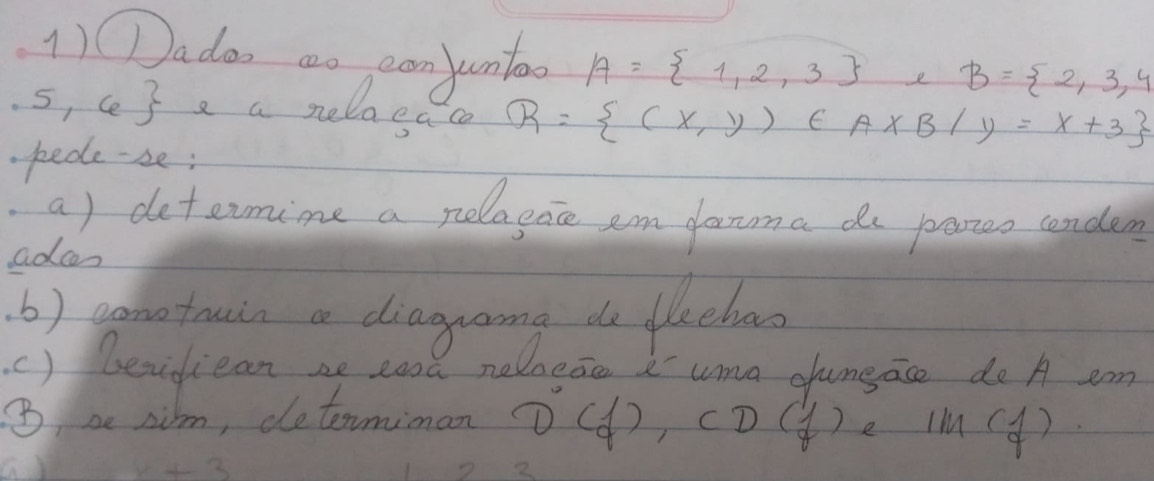 1) Dados os conjuntos A = { 1, 2, 3 } e B = { 2, 3, 4
5, 6 } e a relação R = { ( x, y ) ∈ A X B / y = x + 3 }
pede-se:
a) determine a relação em forma de pares orden
ados
b) construir o diagrama de flechas
c) Verificar se essa relação é uma função de A em
B, se sim, determinar D (f), CD (f) e IM (f).
x + 3 1 2 3